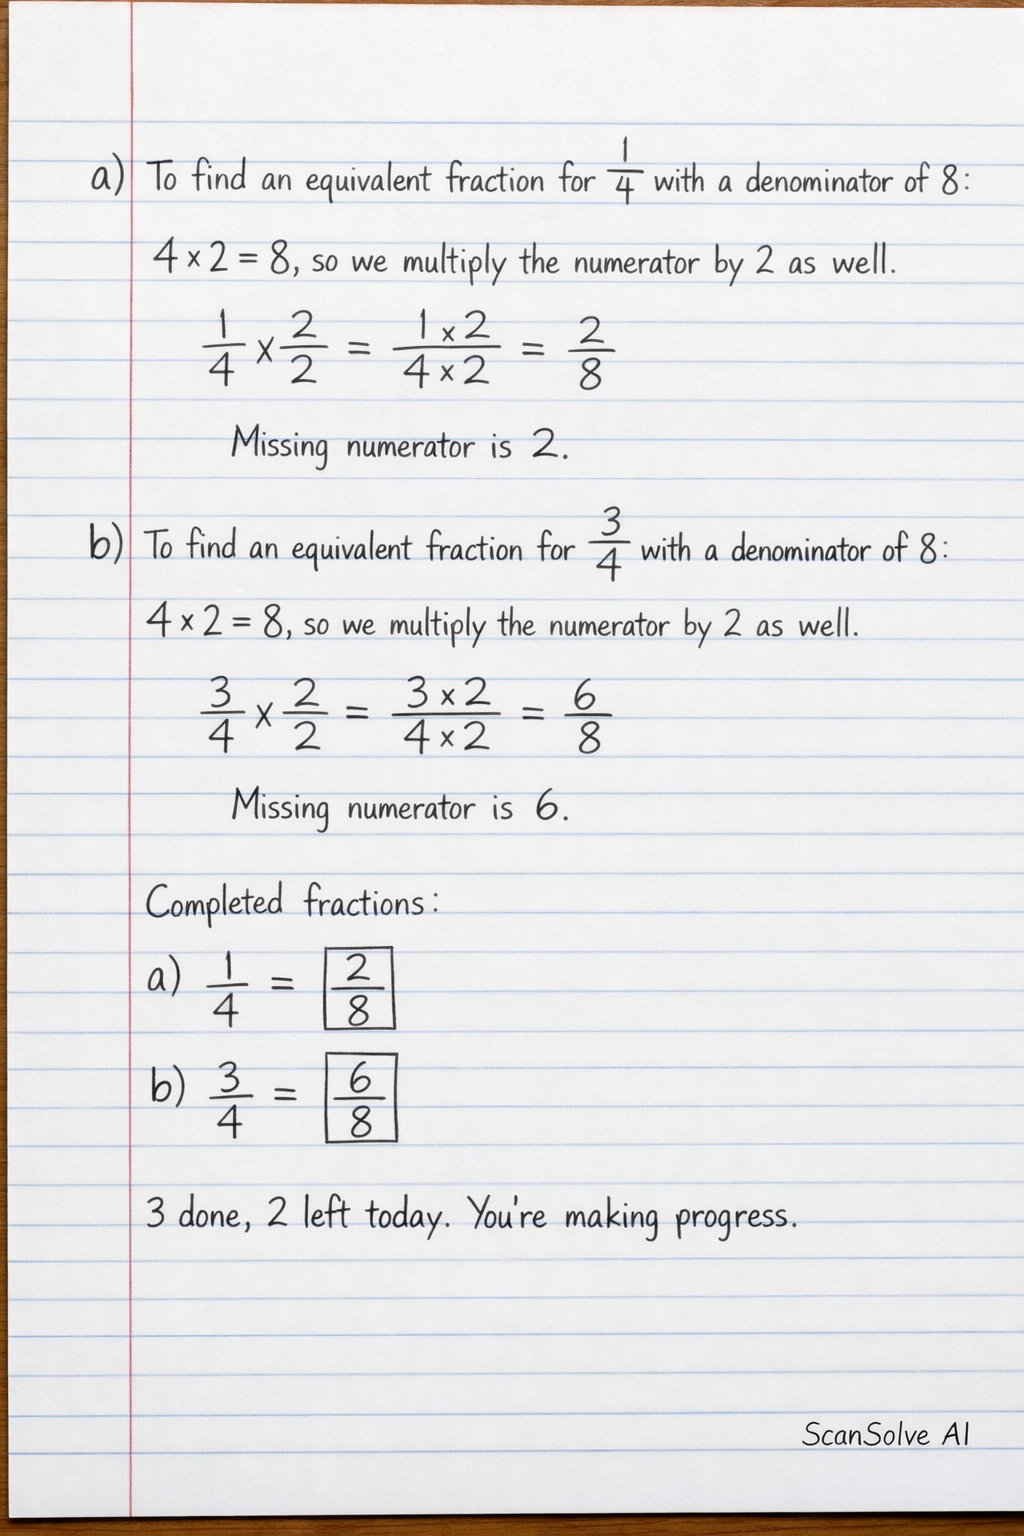 a) To find an equivalent fraction for 1/4 with a denominator of 8:
4 × 2 = 8, so we multiply the numerator by 2 as well.
1/4 × 2/2 = (1 × 2)/(4 × 2) = 2/8
Missing numerator is 2.
b) To find an equivalent fraction for 3/4 with a denominator of 8:
4 × 2 = 8, so we multiply the numerator by 2 as well.
3/4 × 2/2 = (3 × 2)/(4 × 2) = 6/8
Missing numerator is 6.
Completed fractions:
a) 1/4 = 2/8
b) 3/4 = 6/8
3 done, 2 left today. You're making progress.
ScanSolve AI